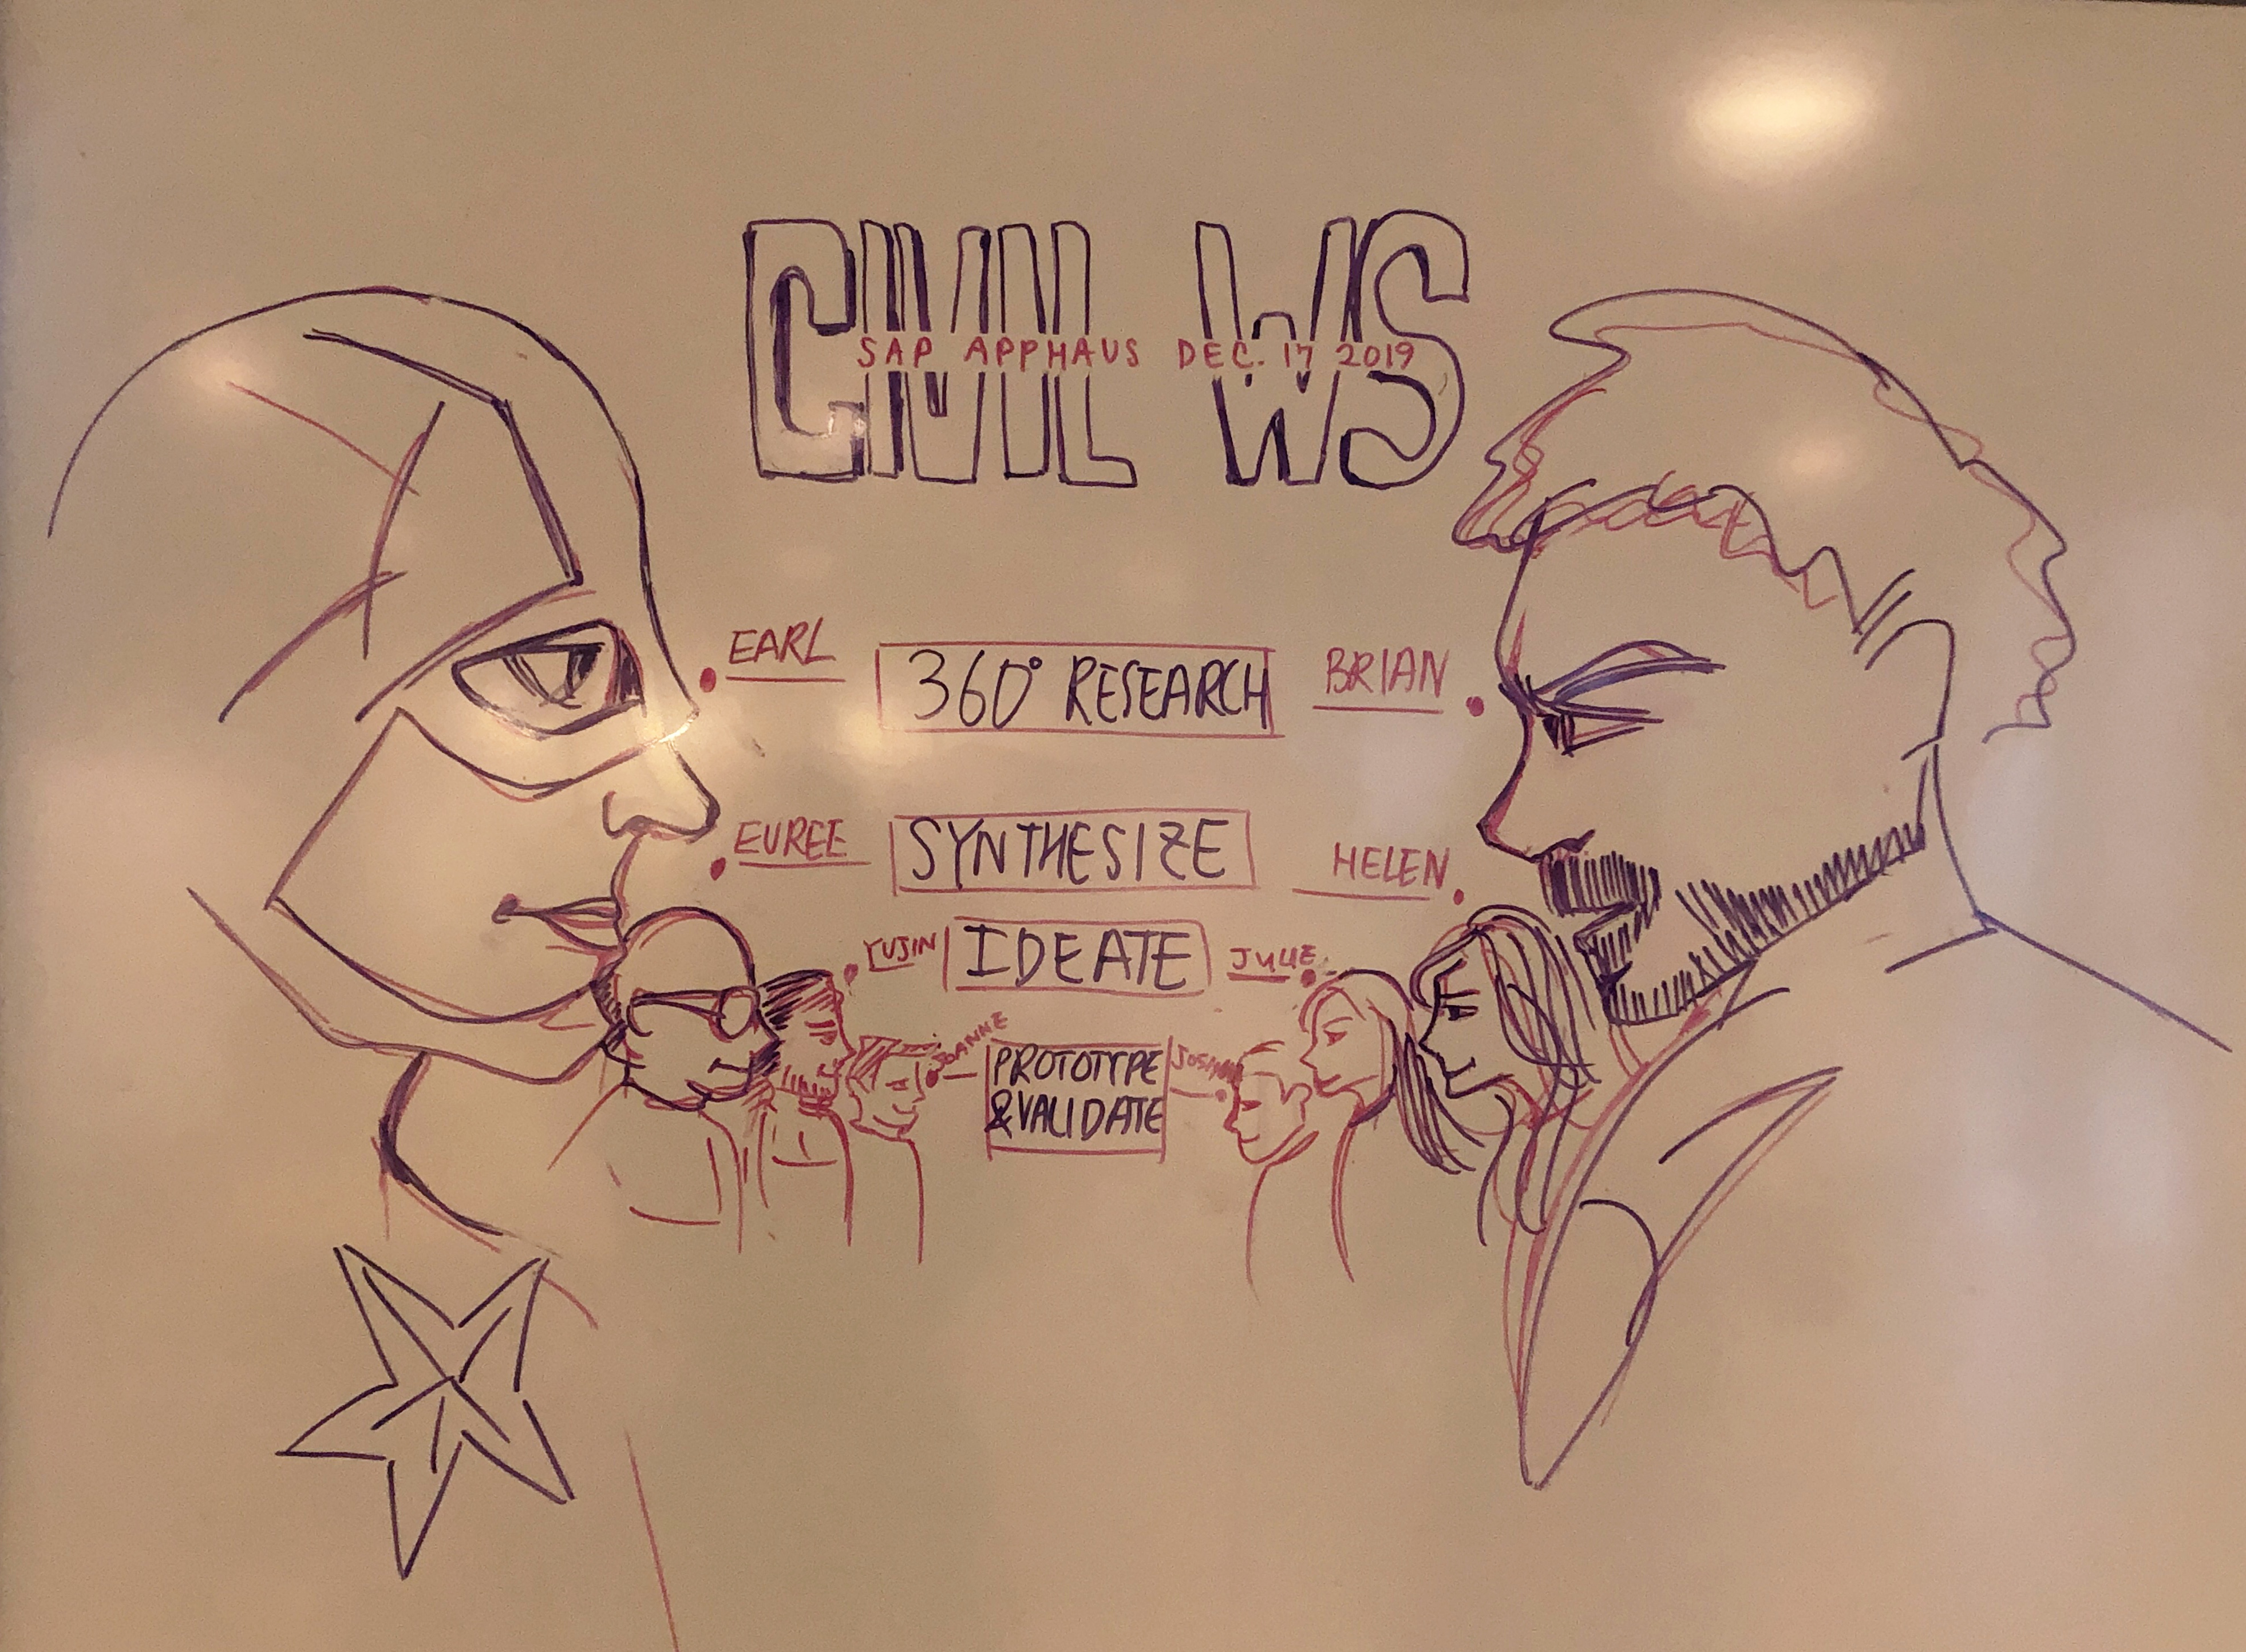 CIVIL WS
SAP APPHAUS DEC. 17 2019
EARL
360° RESEARCH
BRIAN
EUREE
SYNTHESIZE
HELEN
YUJIN
IDEATE
JULIE
JOANNE
PROTOTYPE
& VALIDATE